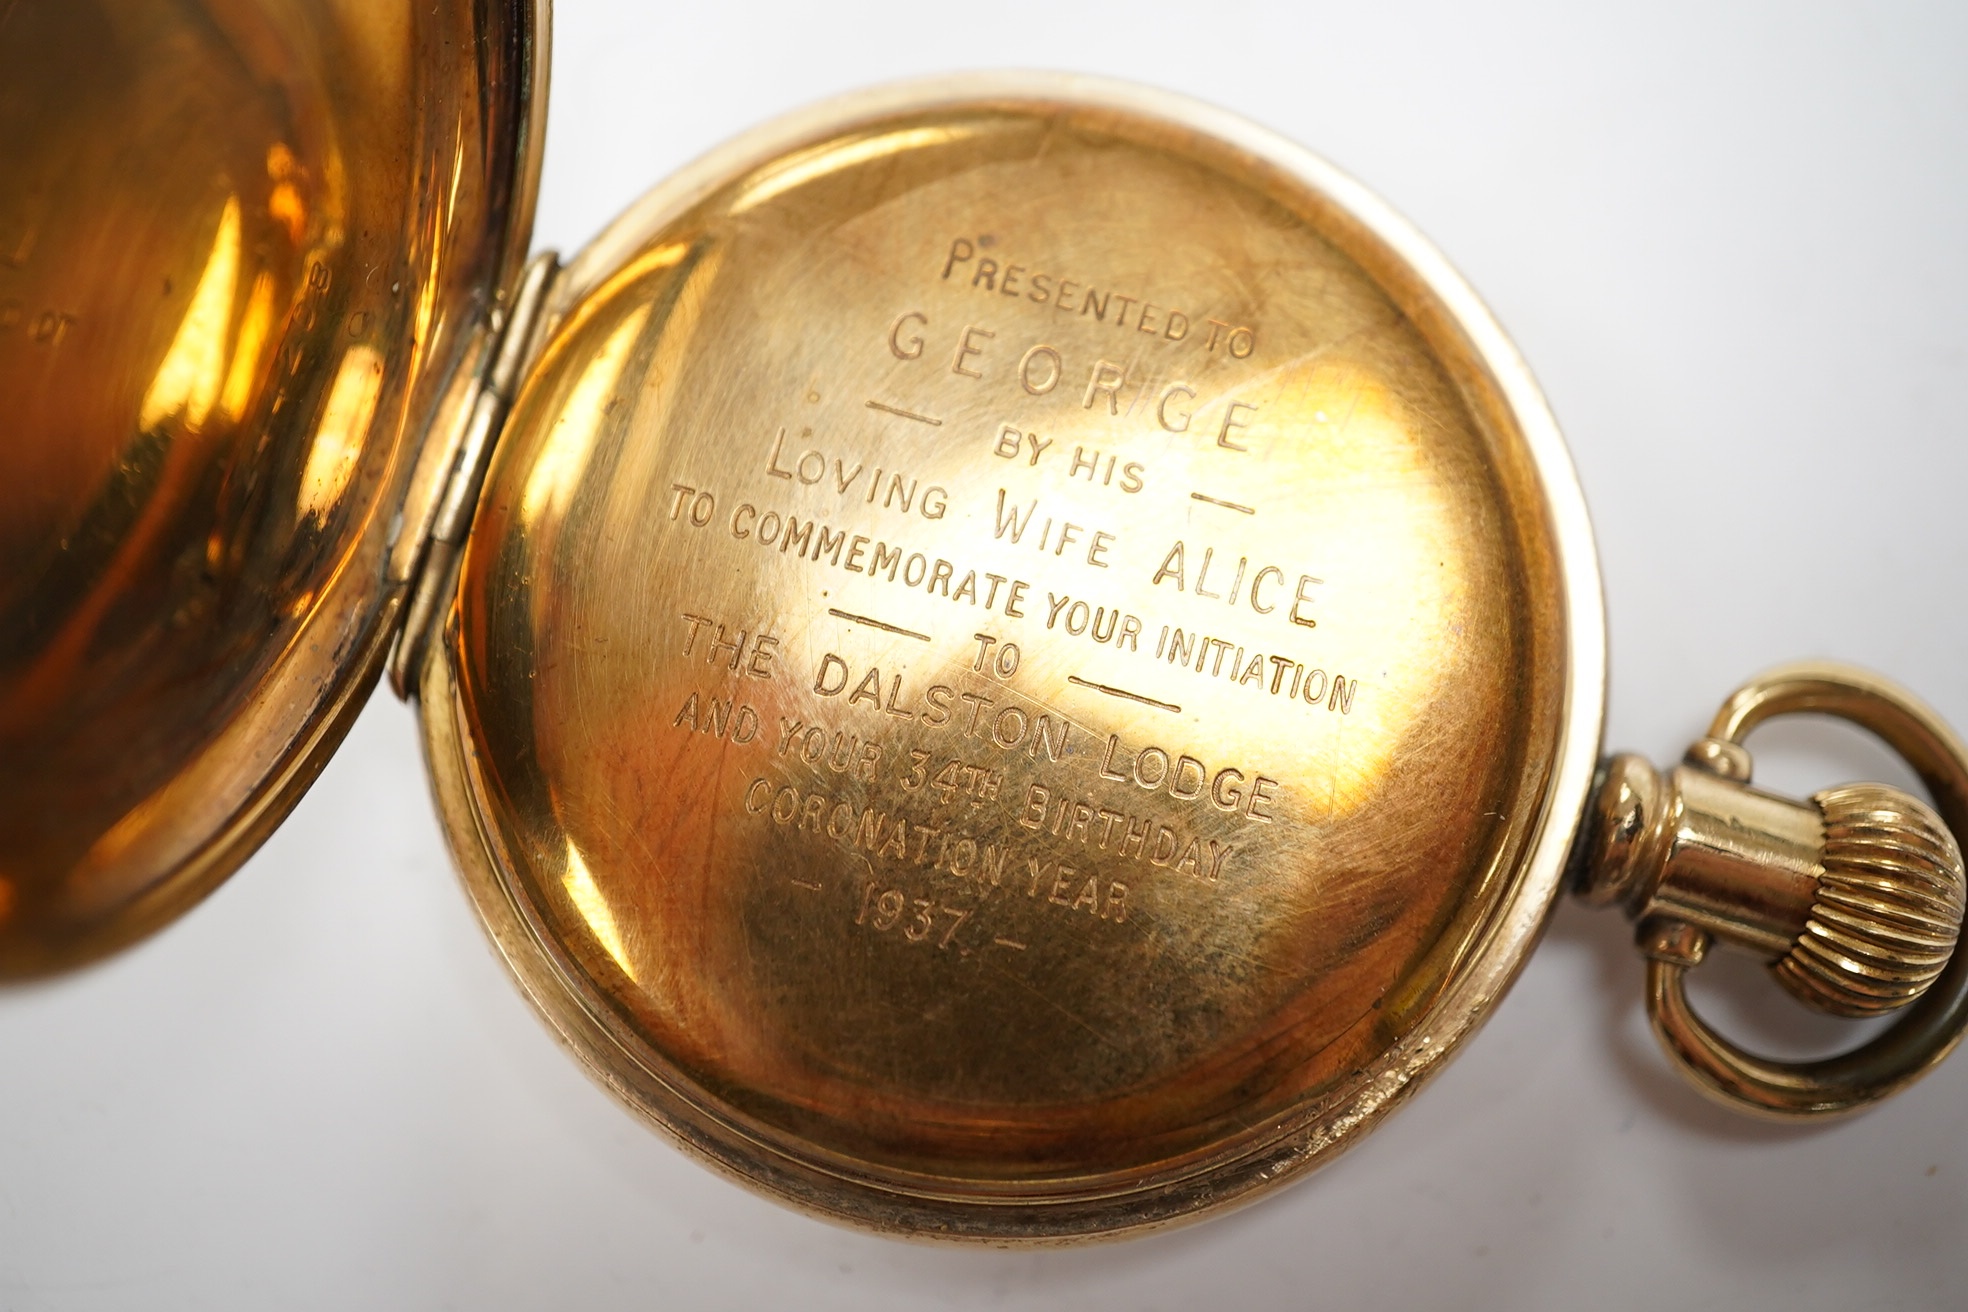 PRESENTED TO
GEORGE
— BY HIS —
LOVING WIFE ALICE
TO COMMEMORATE YOUR INITIATION
— TO —
THE DALSTON LODGE
AND YOUR 34TH BIRTHDAY
CORONATION YEAR
– 1937 –